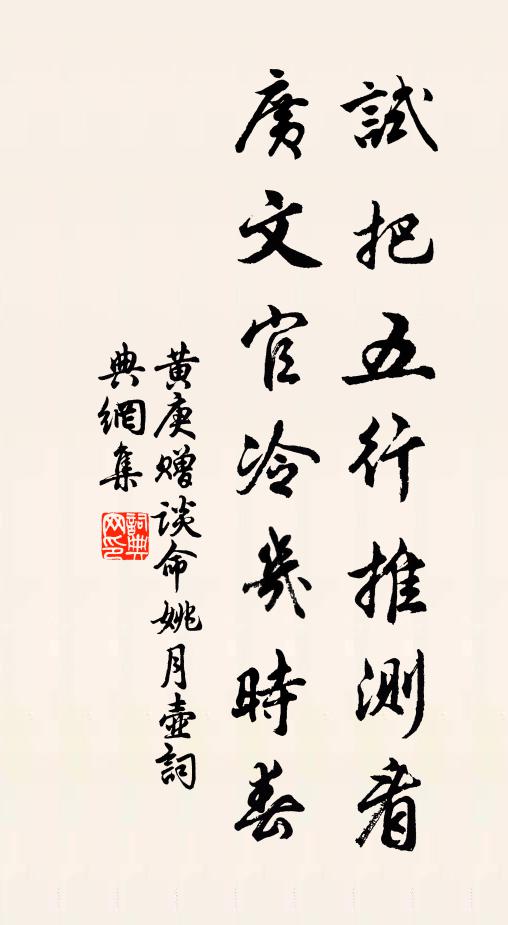 試把五行推測看
廣文官冷幾時春
黃庚贈談命姚月壺詞
典網集
詞典
网印